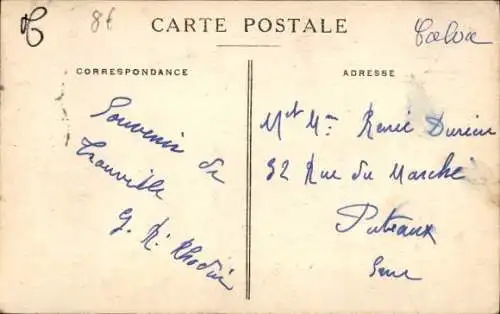 86
CARTE POSTALE
CORRESPONDANCE
ADRESSE
Souvenir de
Trouville
G. R.
Mr et Mme René
32 Rue du Marché
Puteaux
Seine